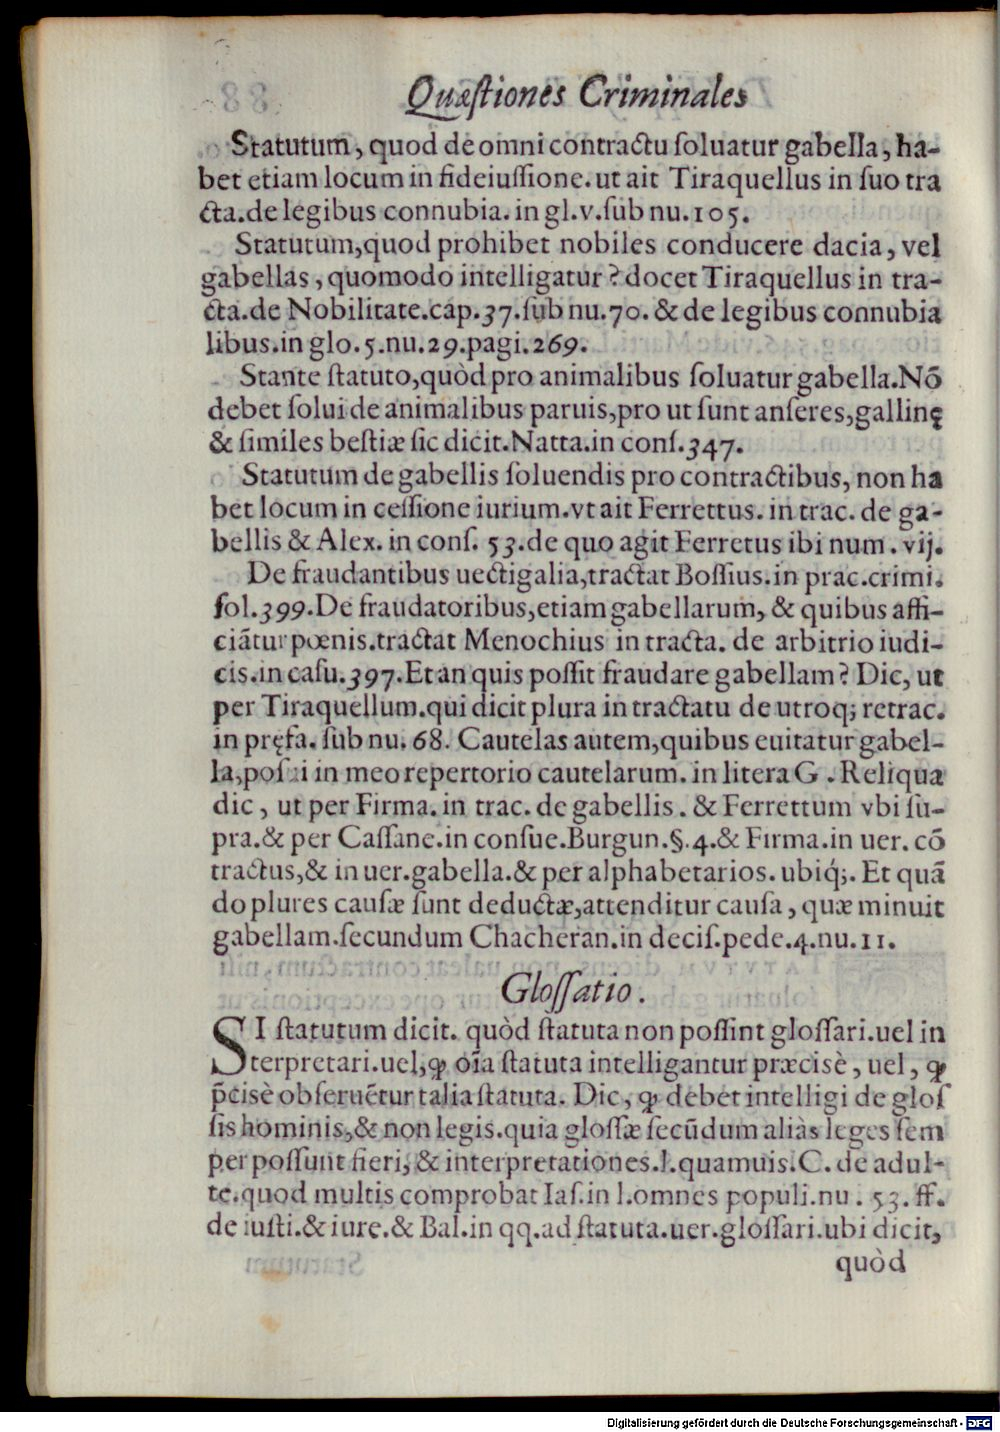 Quæſtiones Criminales
Statutum, quod de omni contractu ſoluatur gabella, ha-
bet etiam locum in fideiuſſione. ut ait Tiraquellus in ſuo tra
cta. de legibus connubia. in gl. v. ſub nu. 105.
Statutum, quod prohibet nobiles conducere dacia, vel
gabellas, quomodo intelligatur? docet Tiraquellus in tra-
cta. de Nobilitate. cap. 37. ſub nu. 70. & de legibus connubia
libus. in glo. 5. nu. 29. pagi. 269.
Stante ſtatuto, quòd pro animalibus ſoluatur gabella. Nõ
debet ſolui de animalibus paruis, pro ut ſunt anſeres, gallinę
& ſimiles beſtiæ ſic dicit. Natta. in conſ. 347.
Statutum de gabellis ſoluendis pro contractibus, non ha
bet locum in ceſſione iurium. vt ait Ferrettus. in trac. de ga-
bellis & Alex. in conſ. 53. de quo agit Ferretus ibi num. vij.
De fraudantibus uectigalia, tractat Boſſius. in prac. crimi.
fol. 399. De fraudatoribus, etiam gabellarum, & quibus affi-
ciãtur pœnis. tractat Menochius in tracta. de arbitrio iudi-
cis. in caſu. 397. Et an quis poſſit fraudare gabellam? Dic, ut
per Tiraquellum. qui dicit plura in tractatu de utroq; retrac.
in pręfa. ſub nu. 68. Cautelas autem, quibus euitatur gabel-
la, poſui in meo repertorio cautelarum. in litera G. Reliqua
dic, ut per Firma. in trac. de gabellis. & Ferrettum vbi ſu-
pra. & per Caſſane. in conſue. Burgun. §. 4. & Firma. in uer. cõ
tractus, & in uer. gabella. & per alphabetarios. ubiq;. Et quã
do plures cauſæ ſunt deductæ, attenditur cauſa, quæ minuit
gabellam. ſecundum Chacheran. in deciſ. pede. 4. nu. 11.
Gloſſatio.
SI ſtatutum dicit. quòd ſtatuta non poſſint gloſſari. uel in
terpretari. uel, ꝙ oĩa ſtatuta intelligantur præcisè, uel, ꝙ
p̃cisè obſeruẽtur talia ſtatuta. Dic, ꝙ debet intelligi de gloſ
ſis hominis, & non legis. quia gloſſæ ſecũdum aliàs leges ſem
per poſſunt fieri, & interpretationes. l. quamuis. C. de adul-
te. quod multis comprobat Iaſ. in l. omnes populi. nu. 53. ff.
de iuſti. & iure. & Bal. in qq. ad ſtatuta. uer. gloſſari. ubi dicit,
quòd
Digitalisierung gefördert durch die Deutsche Forschungsgemeinschaft - DFG